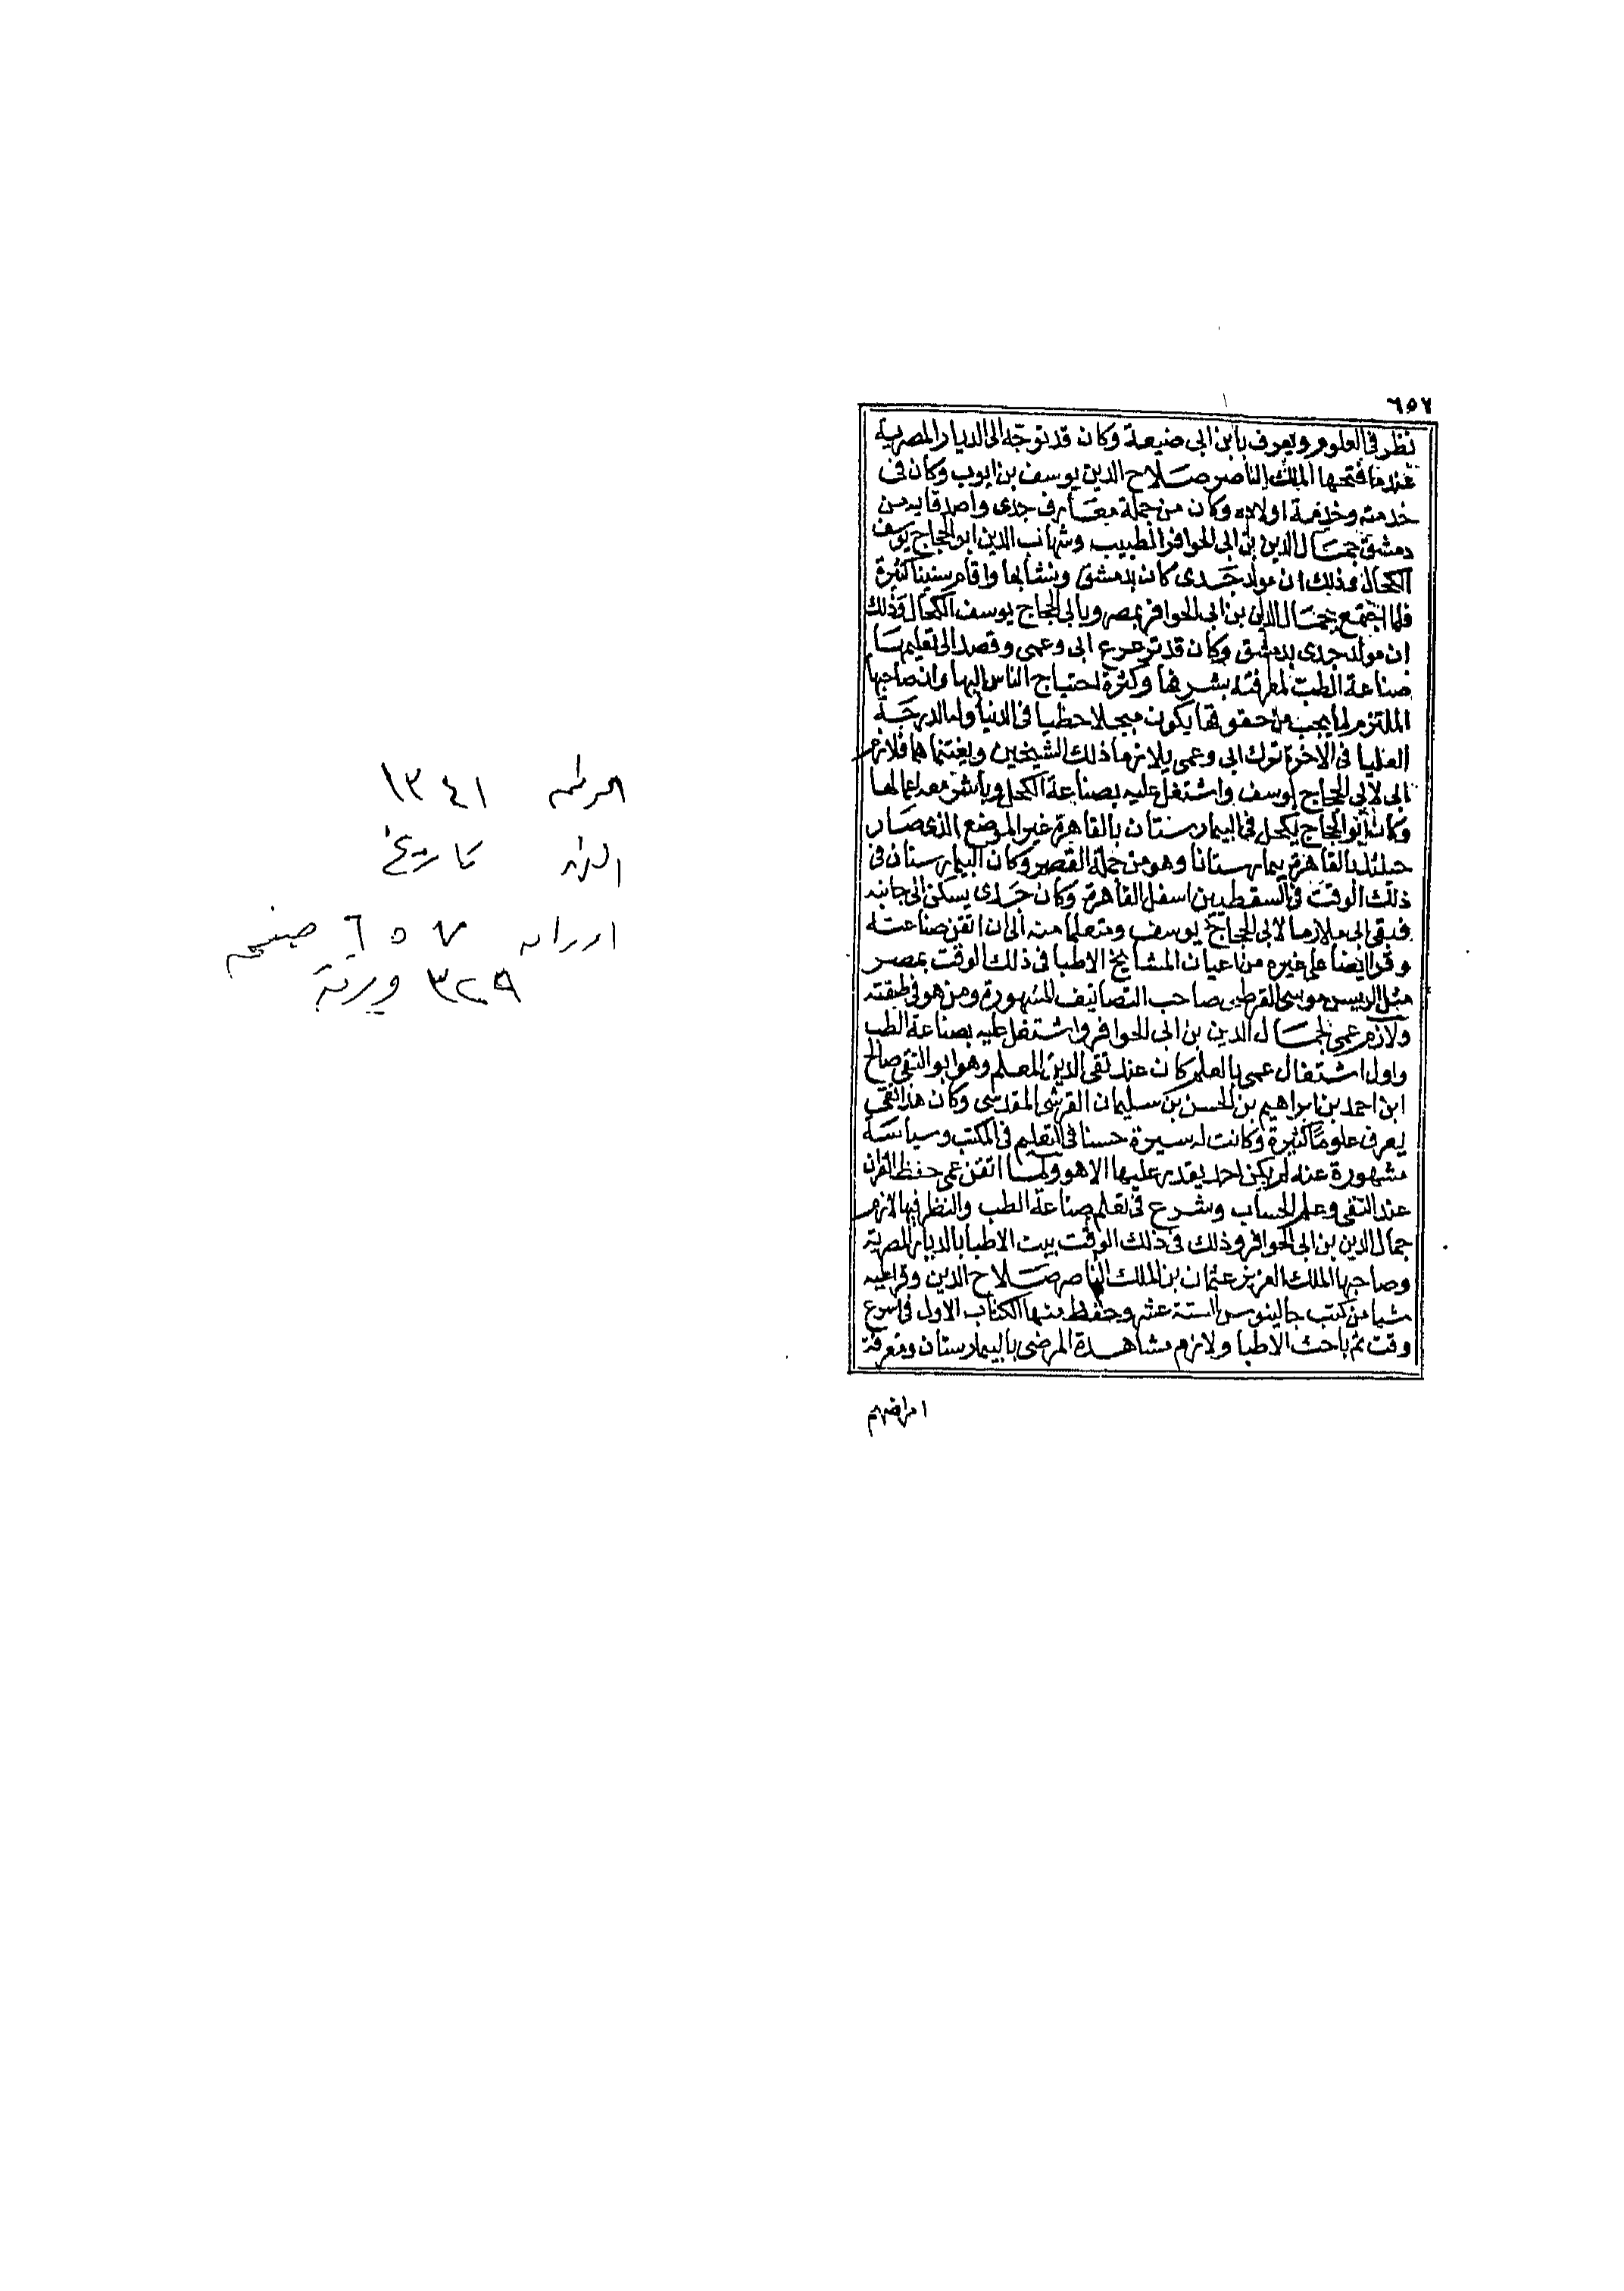 ٦٥٧
نظر فى العلوم ويعرف بابن ابى ضيعة وكان قد توجّه الى الديار المصرية
عندما فتحها الملك الناصر صلاح الدين يوسف بن ايوب وكان فى
خدمته وخدمة اولاده وكان من جملة معارف جدى واصدقايه من
دمشق جمال الدين بن ابى الحوافر الطبيب وشهاب الدين ابو الحجاج يوسف
الكحال وذلك ان مولد جدى كان بدمشق ونشا بها واقام سنينا كثيرة
فلما اجتمع بجمال الدين بن ابى الحوافر بمصر وبابى الحجاج يوسف الكحال وذلك
ان مولد جدى بدمشق وكان قد ترعرع ابى وعمى وقصد الى تعليمهما
صناعة الطب لمعرفته بشرفها وكثرة احتياج الناس اليها وان صاحبها
الملتزم لما يجب من حقوقها يكون مبجلا حظيا فى الدنيا وله الدرجة
العليا فى الاخرة ترك ابى وعمى يلازما ذلك الشيخين ويغتنماهما فلازم
ابى لابى الحجاج يوسف واشتغل عليه بصناعة الكحل وباشر معه اعمالها
وكان ابو الحجاج يكحل فى البيمارستان بالقاهرة غير الموضع الذى صار
حينئذ بالقاهرة بيمارستانا وهو من جملة القصر وكان البيمارستان فى
ذلك الوقت فى السقطيين اسفل القاهرة وكان جدى يسكن الى جانبه
فبقى ابى ملازما لابى الحجاج يوسف ومتعلما منه الى ان اتقن صناعته
وقرا ايضا على غيره من اعيان المشايخ الاطبا فى ذلك الوقت بمصر
مثل الريس موسى القرطبى صاحب التصانيف المشهورة ومن هو فى طبقته
ولازم عمى لجمال الدين بن ابى الحوافر واشتغل عليه بصناعة الطب
واول اشتغال عمى بالعلم كان عند تقى الدين المعلم وهو ابو التقى صالح
ابن احمد بن ابراهيم بن الحسن بن سليمان القرشى المقدسى وكان هذا التقى
يعرف علومًا كثيرة وكانت له سيرة حسنا فى التعليم فى المكتب وسياسة
مشهورة عنه لم يكن احد يقدر عليها الا هو ولما اتقن عمى حفظ القران
عند التقى وعلم الحساب وشرع فى تعلم صناعة الطب والنظر فيها لازم
جمال الدين بن ابى الحوافر وذلك فى ذلك الوقت بيت الاطبا بالديار المصرية
وصاحبها الملك العزيز عثمان بن الملك الناصر صلاح الدين وقرا عليه
شيا من كتب جالينوس الستة عشر وحفظ منها الكتاب الاول فى اسرع
وقت ثم باحث الاطبا ولازم مشاهدة المرضى بالبيمارستان ومعرفة
امراضهم
١٣٤١
تاريخ
اوراقه ٦٥٧ صفحة
٣٢٩ ورقة